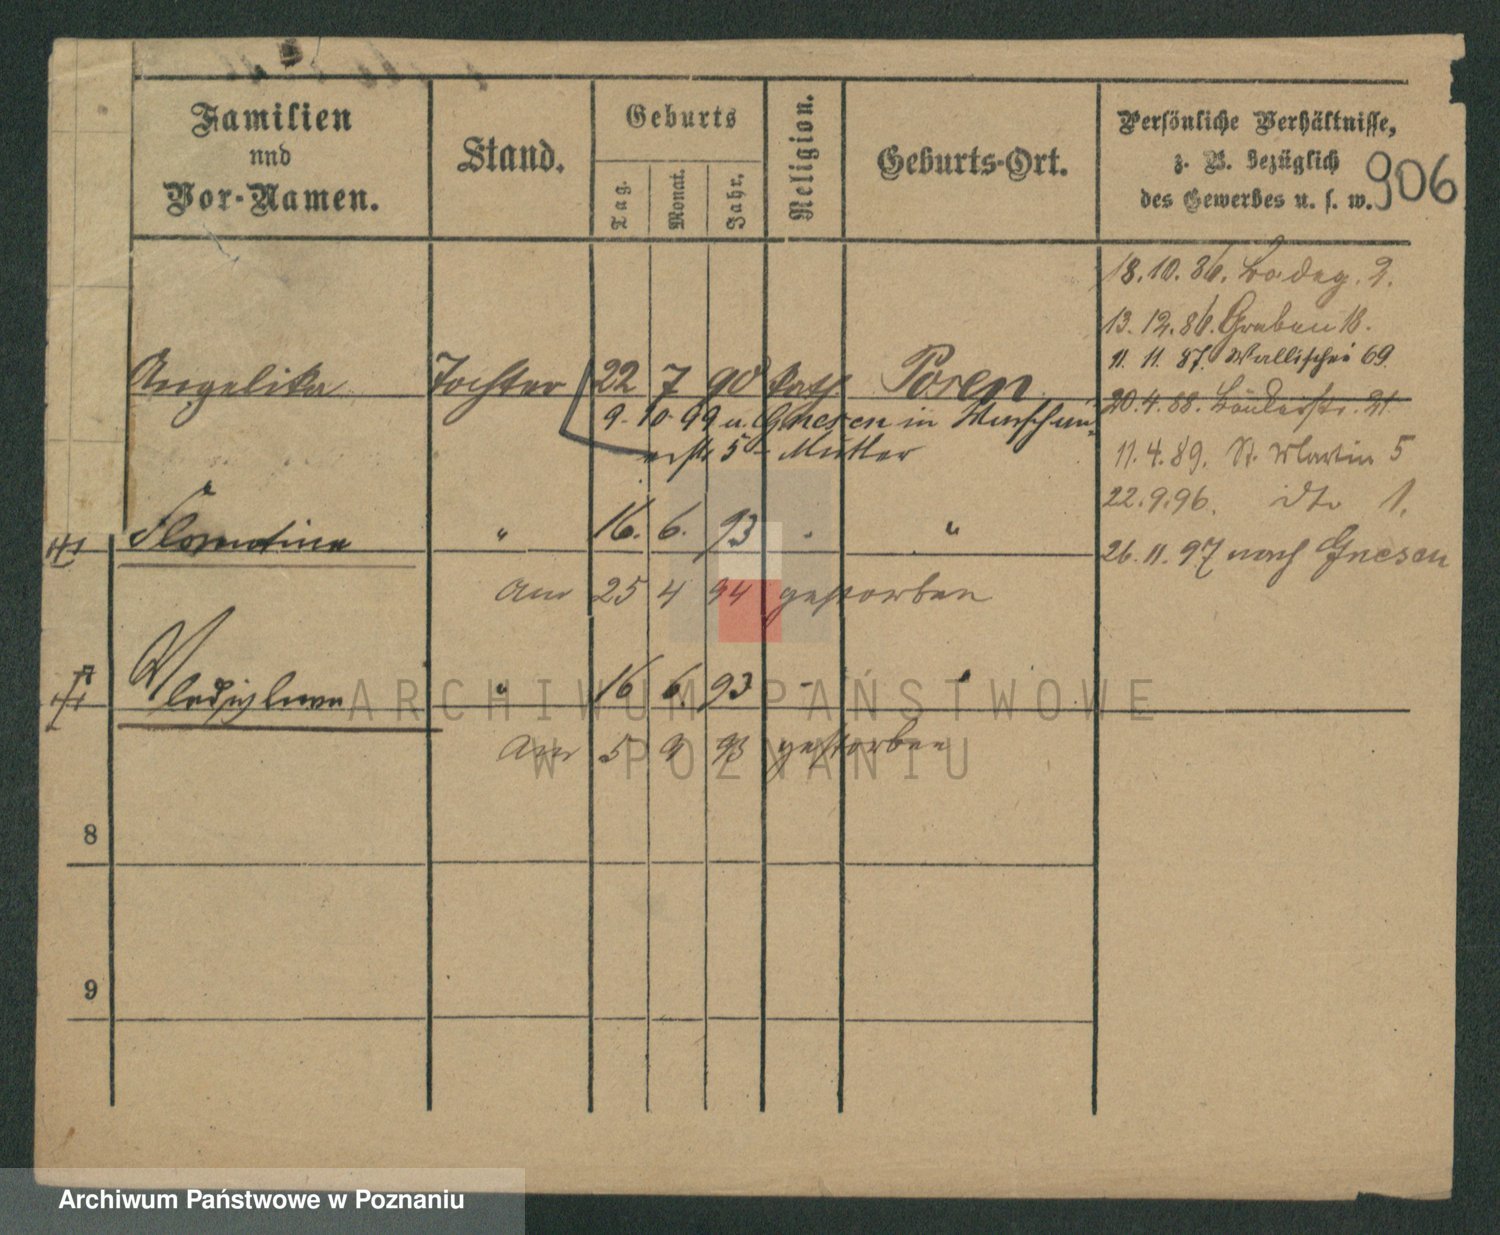 Familien
und
Vor-Namen.
Stand.
Geburts
Tag.
Monat.
Jahr.
Religion.
Geburts-Ort.
Persönliche Verhältnisse,
z. B. bezüglich
des Gewerbes u. s. w.
906
18.10.86. Badeg. 2.
13.12.86. Graben 18.
11 11. 87. Wallischei 69
Angelika Tochter 22 7 90 kath. Posen
20.4.88. Bäckerstr. 21
9. 10 99 u. Gnesen in
5 - Mutter
11.4.89. St. Martin 5
22.9.96. dto 1.
Florentina " 16. 6. 93 - "
26.11.97 nach Gnesen
am 25 4 94 gestorben
Wladislawa " 16 6. 93 - "
am 5 9 93 gestorben
8
9
ARCHIWUM PAŃSTWOWE
W POZNANIU
Archiwum Państwowe w Poznaniu